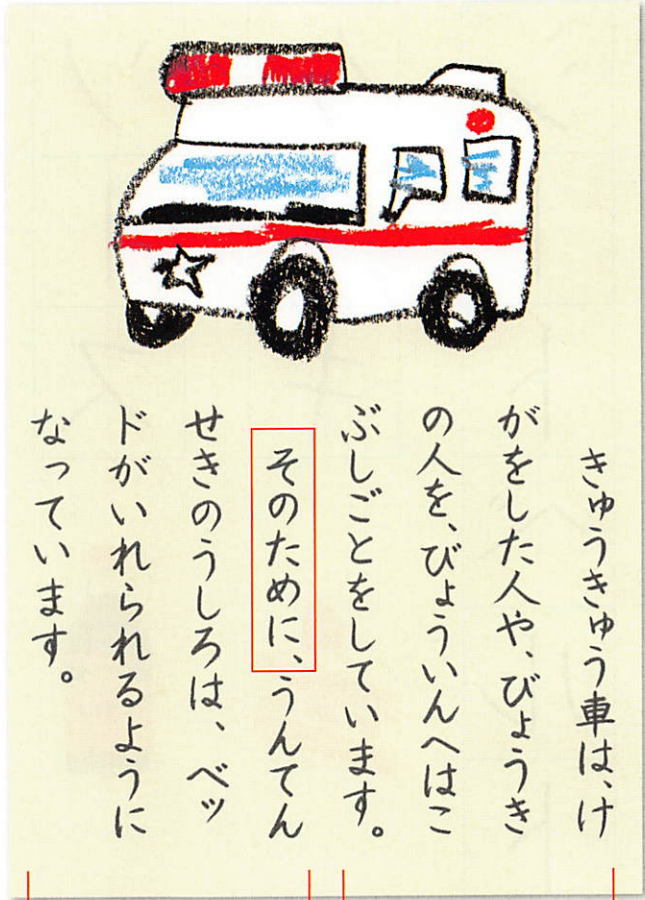 きゅうきゅう車は、け
がをした人や、びょうき
の人を、びょういんへはこ
ぶしごとをしています。
そのために、うんてん
せきのうしろは、ベッ
ドがいれられるように
なっています。